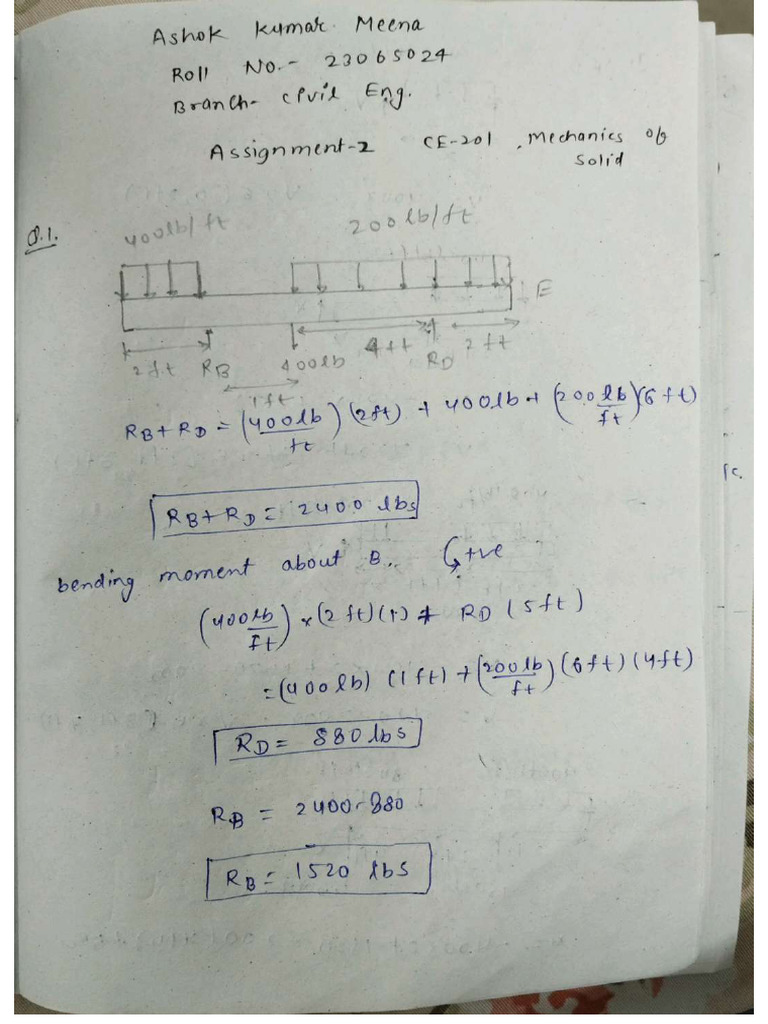 Ashok Kumar Meena
Roll No.- 23065024
Branch- Civil Eng.
Assignment-2 CE-201, Mechanics of
Solid
Q.1.
400lb/ft 200lb/ft
E
2ft RB 400lb 4ft RD 2ft
1ft
RB + RD = (400lb/ft)(2ft) + 400lb + (200lb/ft)(6ft)
RB + RD = 2400 lbs
bending moment about B. +ve
(400lb/ft) × (2ft)(1) + RD (5ft)
= (400lb) (1ft) + (200lb/ft) (6ft) (4ft)
RD = 880 lbs
RB = 2400-880
RB = 1520 lbs